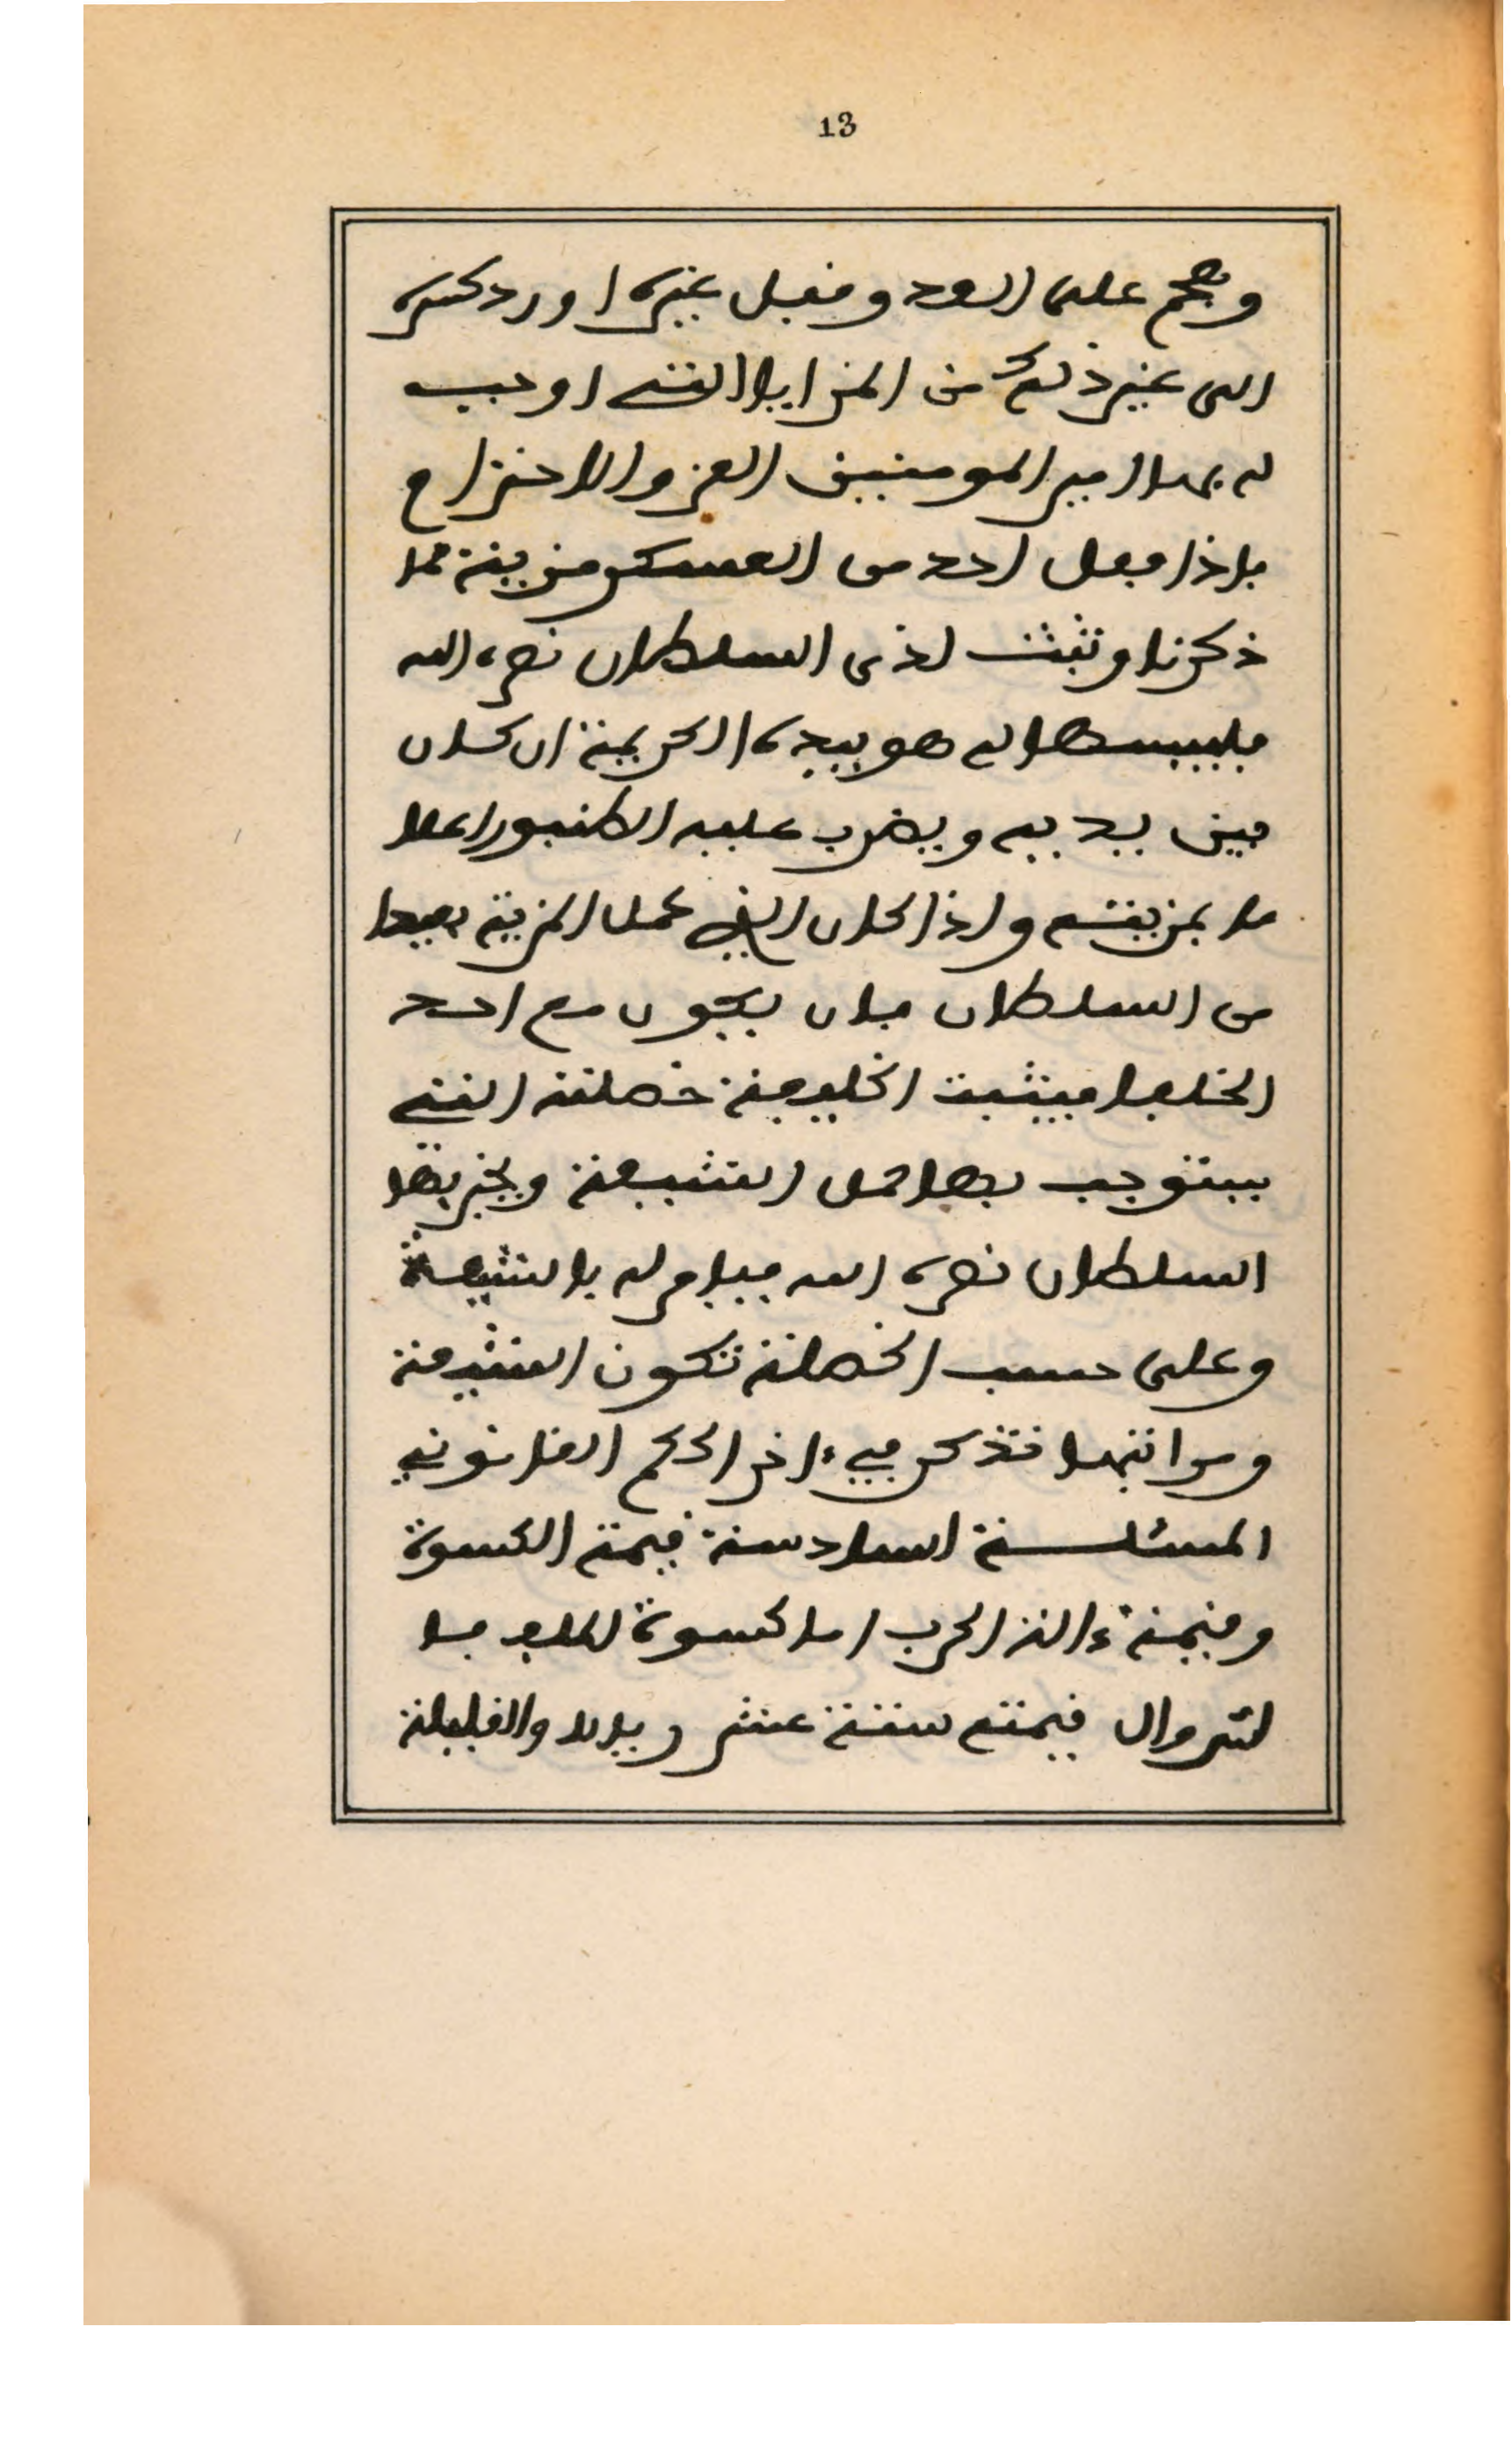 13
وهجم على العدو قبل غيره او رد كسره
الى غير ذلك من المزايا التي اوجب
له بها امير المومنين العز والاحترام
فاذا فعل احد من العسكر مزية مما
ذكرنا وتبثت لذى السلطان نصره الله
فيلبسها له هو بيده الكريمة ان كان
بين يديه ويضرب عليه الطنبور اعلا
ما بمزيته واذا كان الذي عمل المزية بعيدا
من السلطان فان يكون مع احد
الخلفا فيثبت الخليفة خصلته التي
يستوجب بها حمل الشيعة ويخبر بها
السلطان نصره الله فيامر له بالشيعة
وعلى حسب الخصلة تكون الشيعة
ومراتبها تذكر في ءاخر الحكم القانوني
المسئلة السادسة قيمة الكسوة
وقيمة ءالة الحرب اما كسوة الملف فا
لسروال قيمته ستة عشر ريالا والغليلة